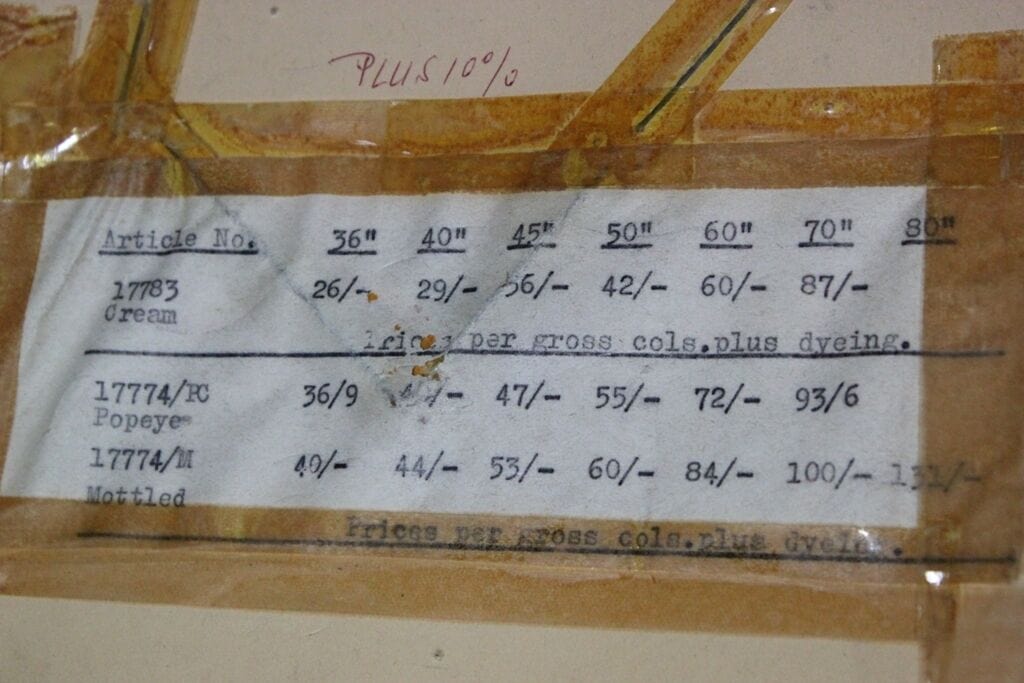 PLUS 10%
Article No. 36" 40" 45" 50" 60" 70" 80"
17783 26/- 29/- 36/- 42/- 60/- 87/-
Cream
Prices per gross cols.plus dyeing.
17774/PC 36/9 47/- 55/- 72/- 93/6
Popeye
17774/M 40/- 44/- 53/- 60/- 84/- 100/- 131/-
Mottled
Prices per gross cols.plus dyeing.